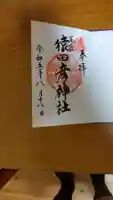 奉拝
猿田彦神社
令和五年八月十八日